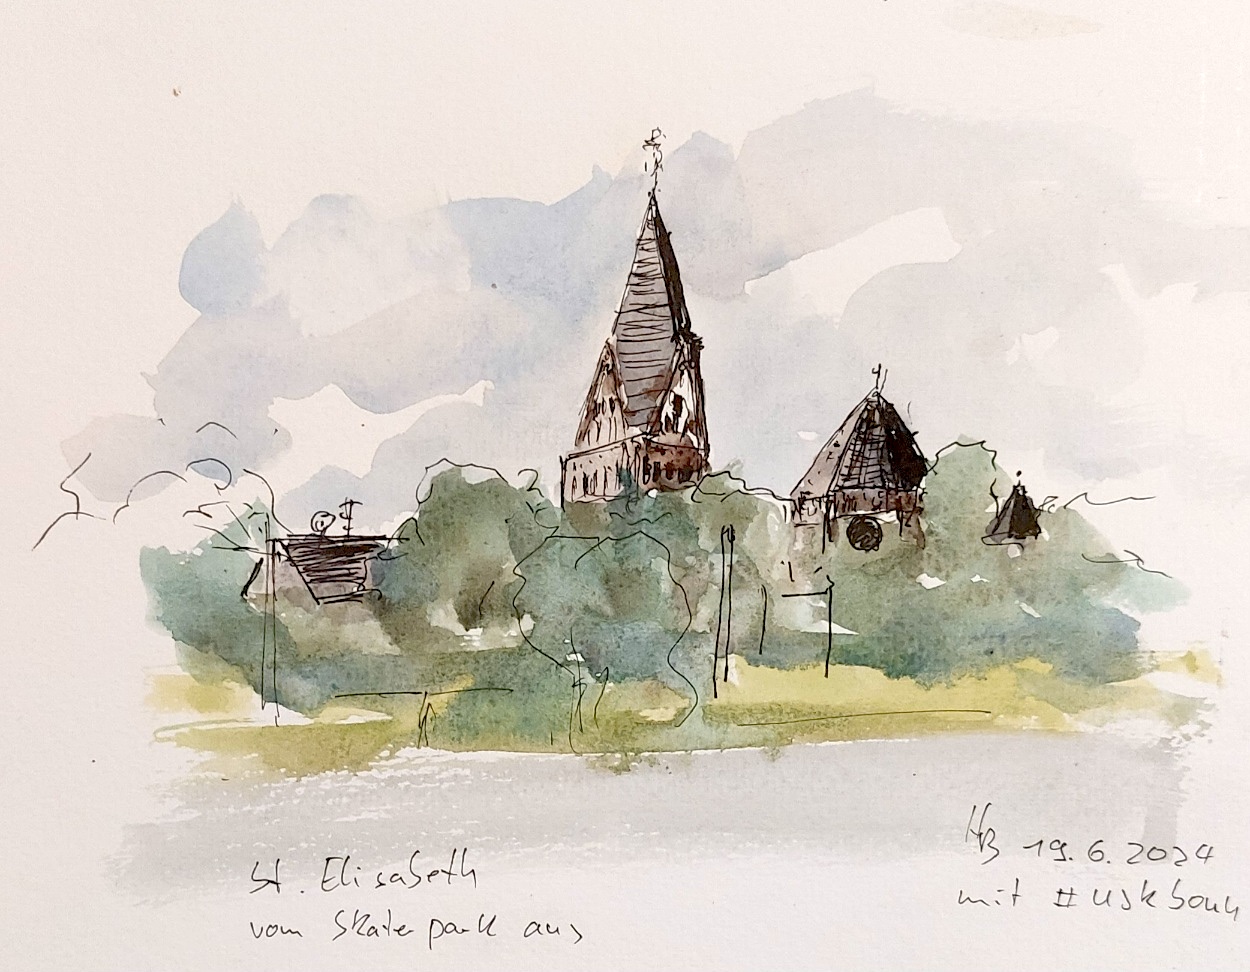 St. Elisabeth
vom Skaterpark aus
HB 19.6.2024
mit #uskbonn